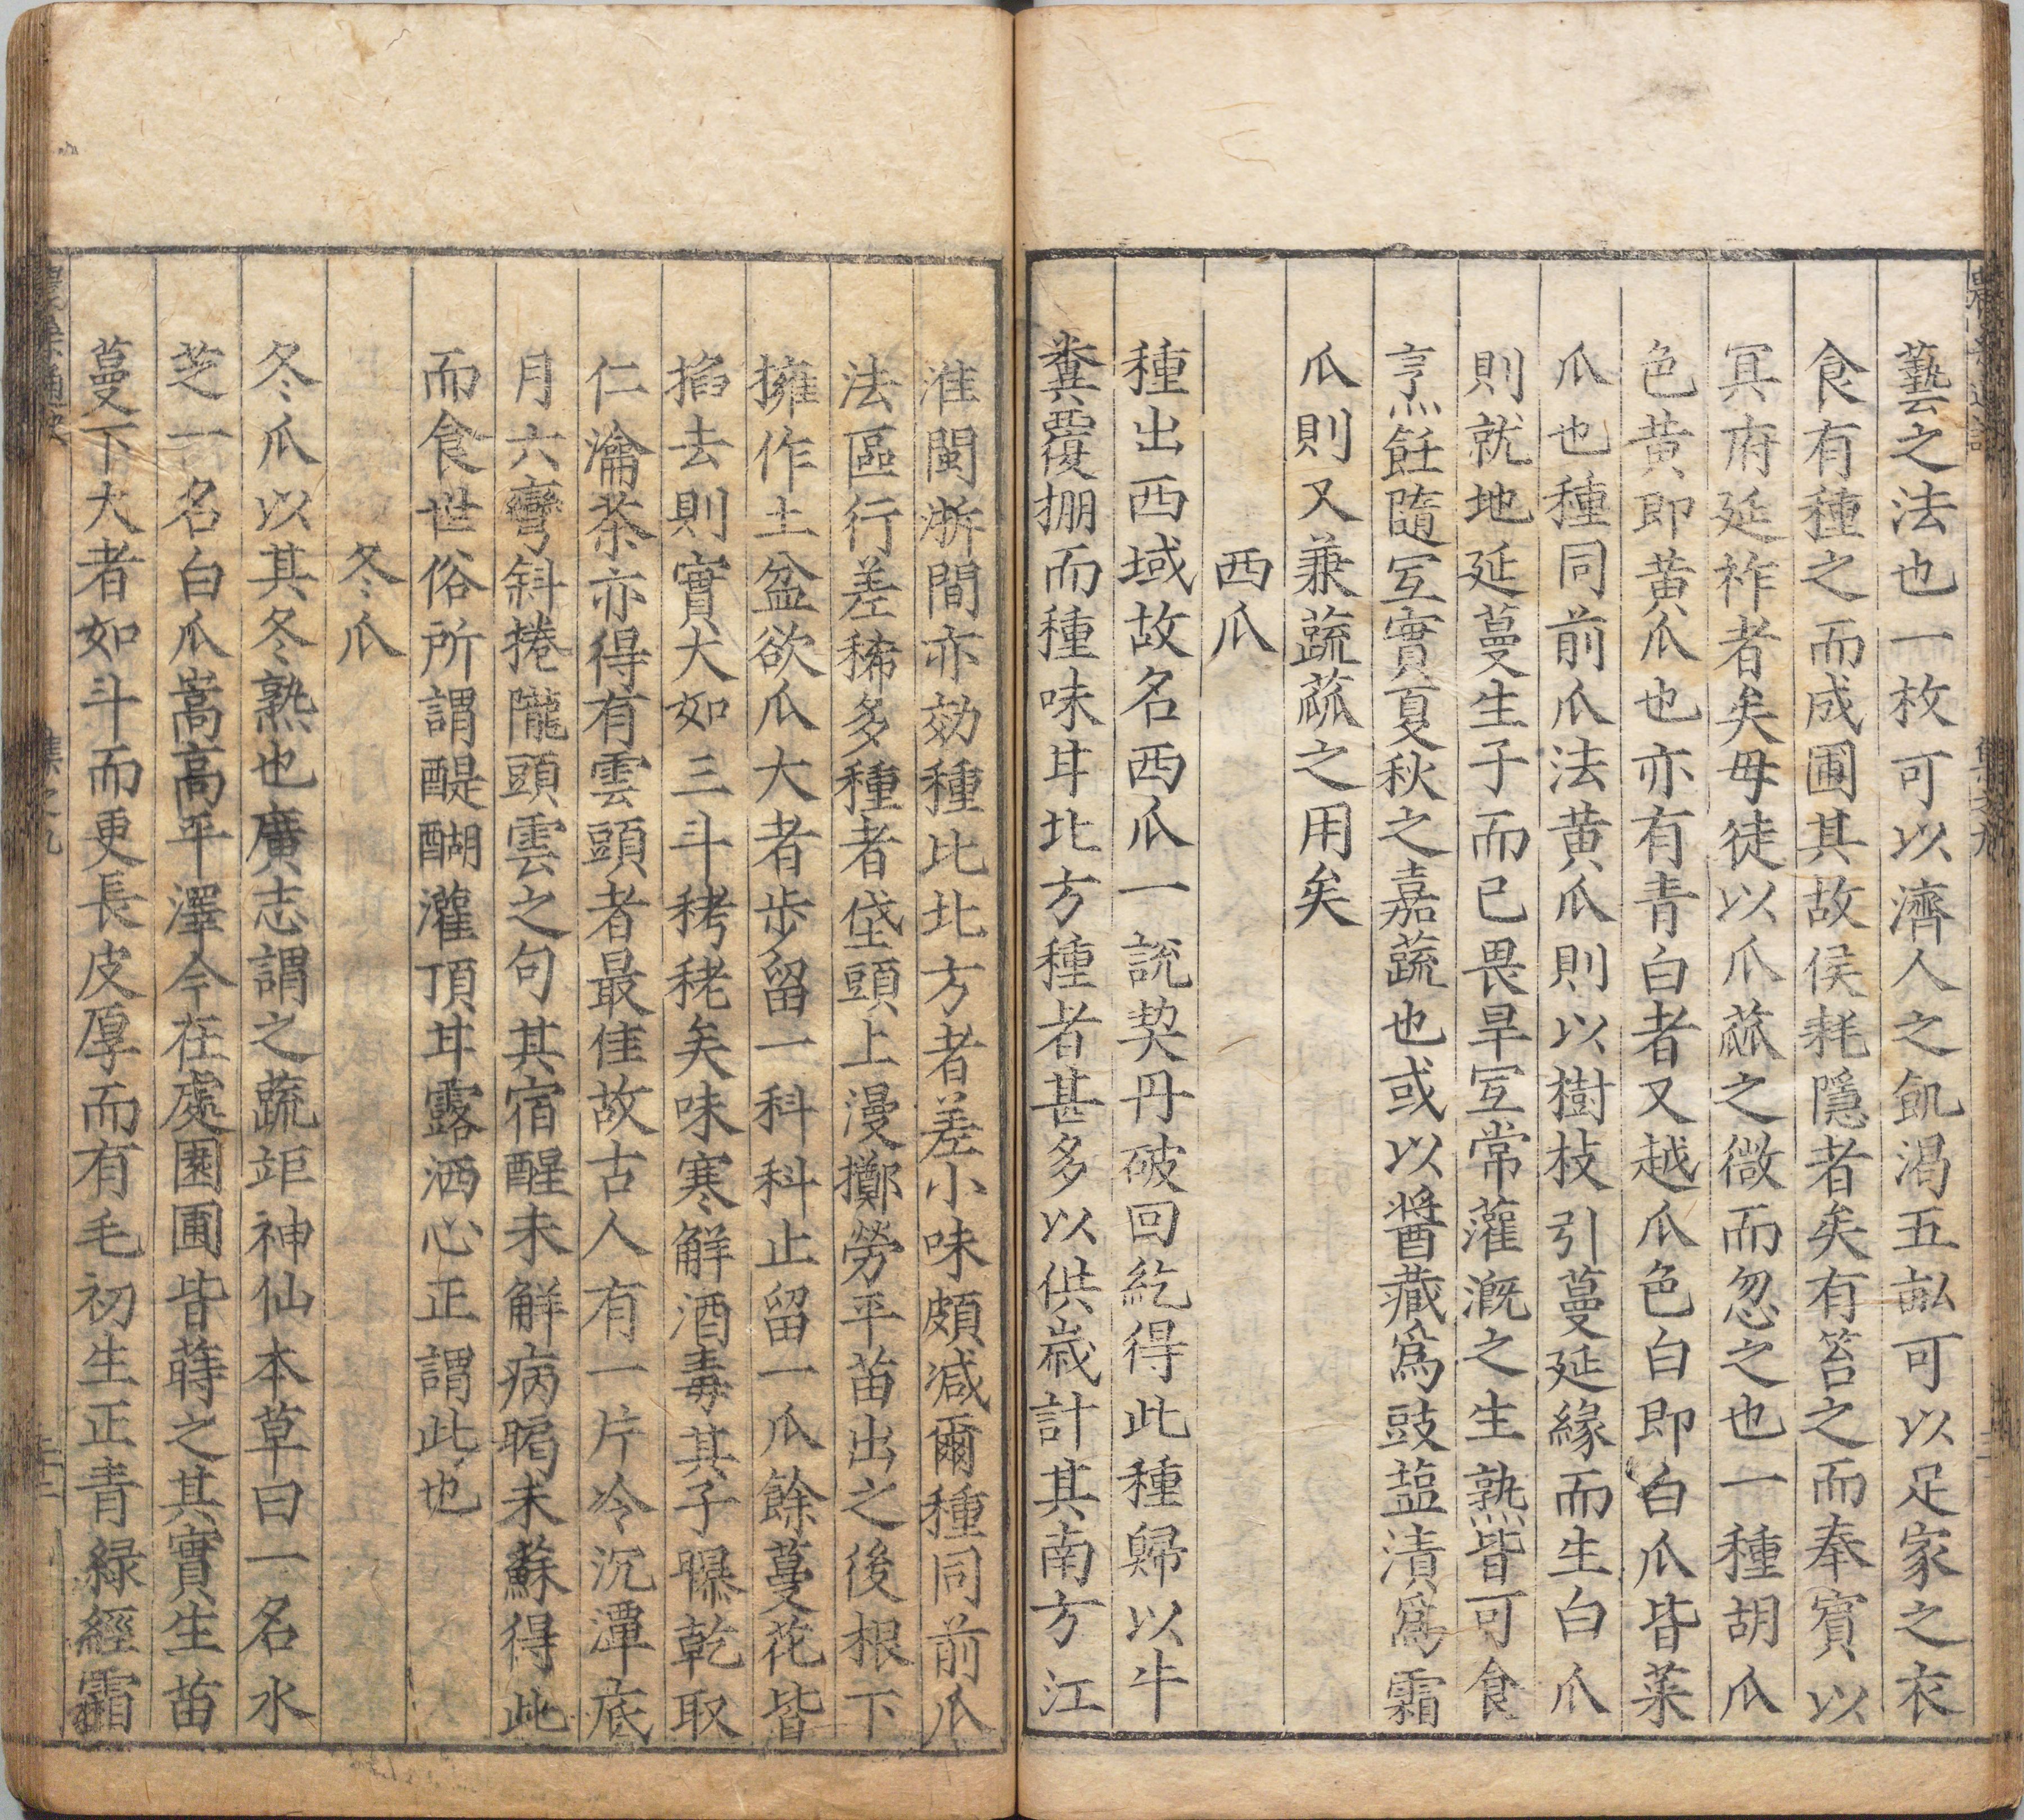 藝之法也一枚可以濟人之飢渴五畆可以足家之衣
食有種之而成圃其故侯耗隱者矣有答之而奉賔以
冥府延祚者矣毋徒以瓜蓏之微而忽之也一種胡瓜
色黄即黄瓜也亦有青白者又越瓜色白即白瓜皆菜
瓜也種同前瓜法黄瓜則以樹枝引蔓延緣而生白瓜
則就地延蔓生子而已畏旱冝常灌溉之生熟皆可食
烹飪隨冝實夏秋之嘉蔬也或以醬藏爲豉䀋漬爲霜
瓜則又兼蔬蓏之用矣
西瓜
種出西域故名西瓜一說契丹破回紇得此種歸以牛
糞覆棚而種味甘北方種者甚多以供歳計其南方江
淮閩浙間亦効種比北方者差小味頗减爾種同前瓜
法區行差稀多種者垡頭上漫擲勞平苗出之後根下
擁作土盆欲瓜大者歩留一科科止留一瓜餘蔓花皆
掐去則實大如三斗栲栳矣味寒解酒毒其子曝乾取
仁瀹茶亦得有雲頭者最佳故古人有一片冷沉潭底
月六彎斜捲隴頭雲之句其宿酲未解病暍未蘇得此
而食世俗所謂醍醐灌頂甘露洒心正謂此也
冬瓜
冬瓜以其冬熟也廣志謂之蔬㰦神仙本草曰一名水
芝一名白瓜嵩高平澤今在處園圃皆蒔之其實生苗
蔓下大者如斗而更長皮厚而有毛初生正青緑經霜